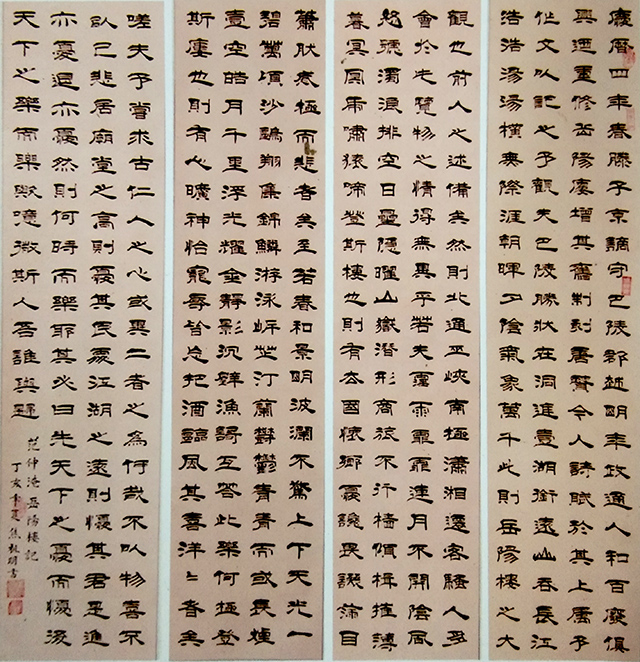 慶曆四年春滕子京謫守巴陵郡越明年政通人和百廢俱
興迺重修岳陽樓增其舊制刻唐賢今人詩賦於其上属予
作文以記之予觀夫巴陵勝状在洞庭壹湖銜遠山吞長江
浩浩湯湯橫無際涯朝暉夕陰氣象萬千此則岳陽樓之大
觀也前人之述備矣然則北通巫峽南極瀟湘遷客騷人多
會於此覽物之情得無異乎若夫霪雨霏霏連月不開陰風
怒號濁浪排空日星隱曜山嶽潛形商旅不行檣傾楫摧薄
暮冥冥虎嘯猿啼登斯樓也則有去國懷鄉憂讒畏譏滿目
蕭然感極而悲者矣至若春和景明波瀾不驚上下天光一
碧萬頃沙鷗翔集錦鱗游泳岸芷汀蘭鬱鬱青青而或長煙
壹空皓月千里浮光耀金靜影沉璧漁謌互答此樂何極登
斯樓也則有心曠神怡寵辱皆忘把酒臨風其喜洋々者矣
嗟夫予嘗求古仁人之心或異二者之為何哉不以物喜不
以己悲居廟堂之高則憂其民處江湖之遠則憂其君是進
亦憂退亦憂然則何時而樂耶其必曰先天下之憂而憂後
天下之樂而樂歟噫微斯人吾誰與歸
范仲淹岳陽樓記
丁亥 夏焦 明書